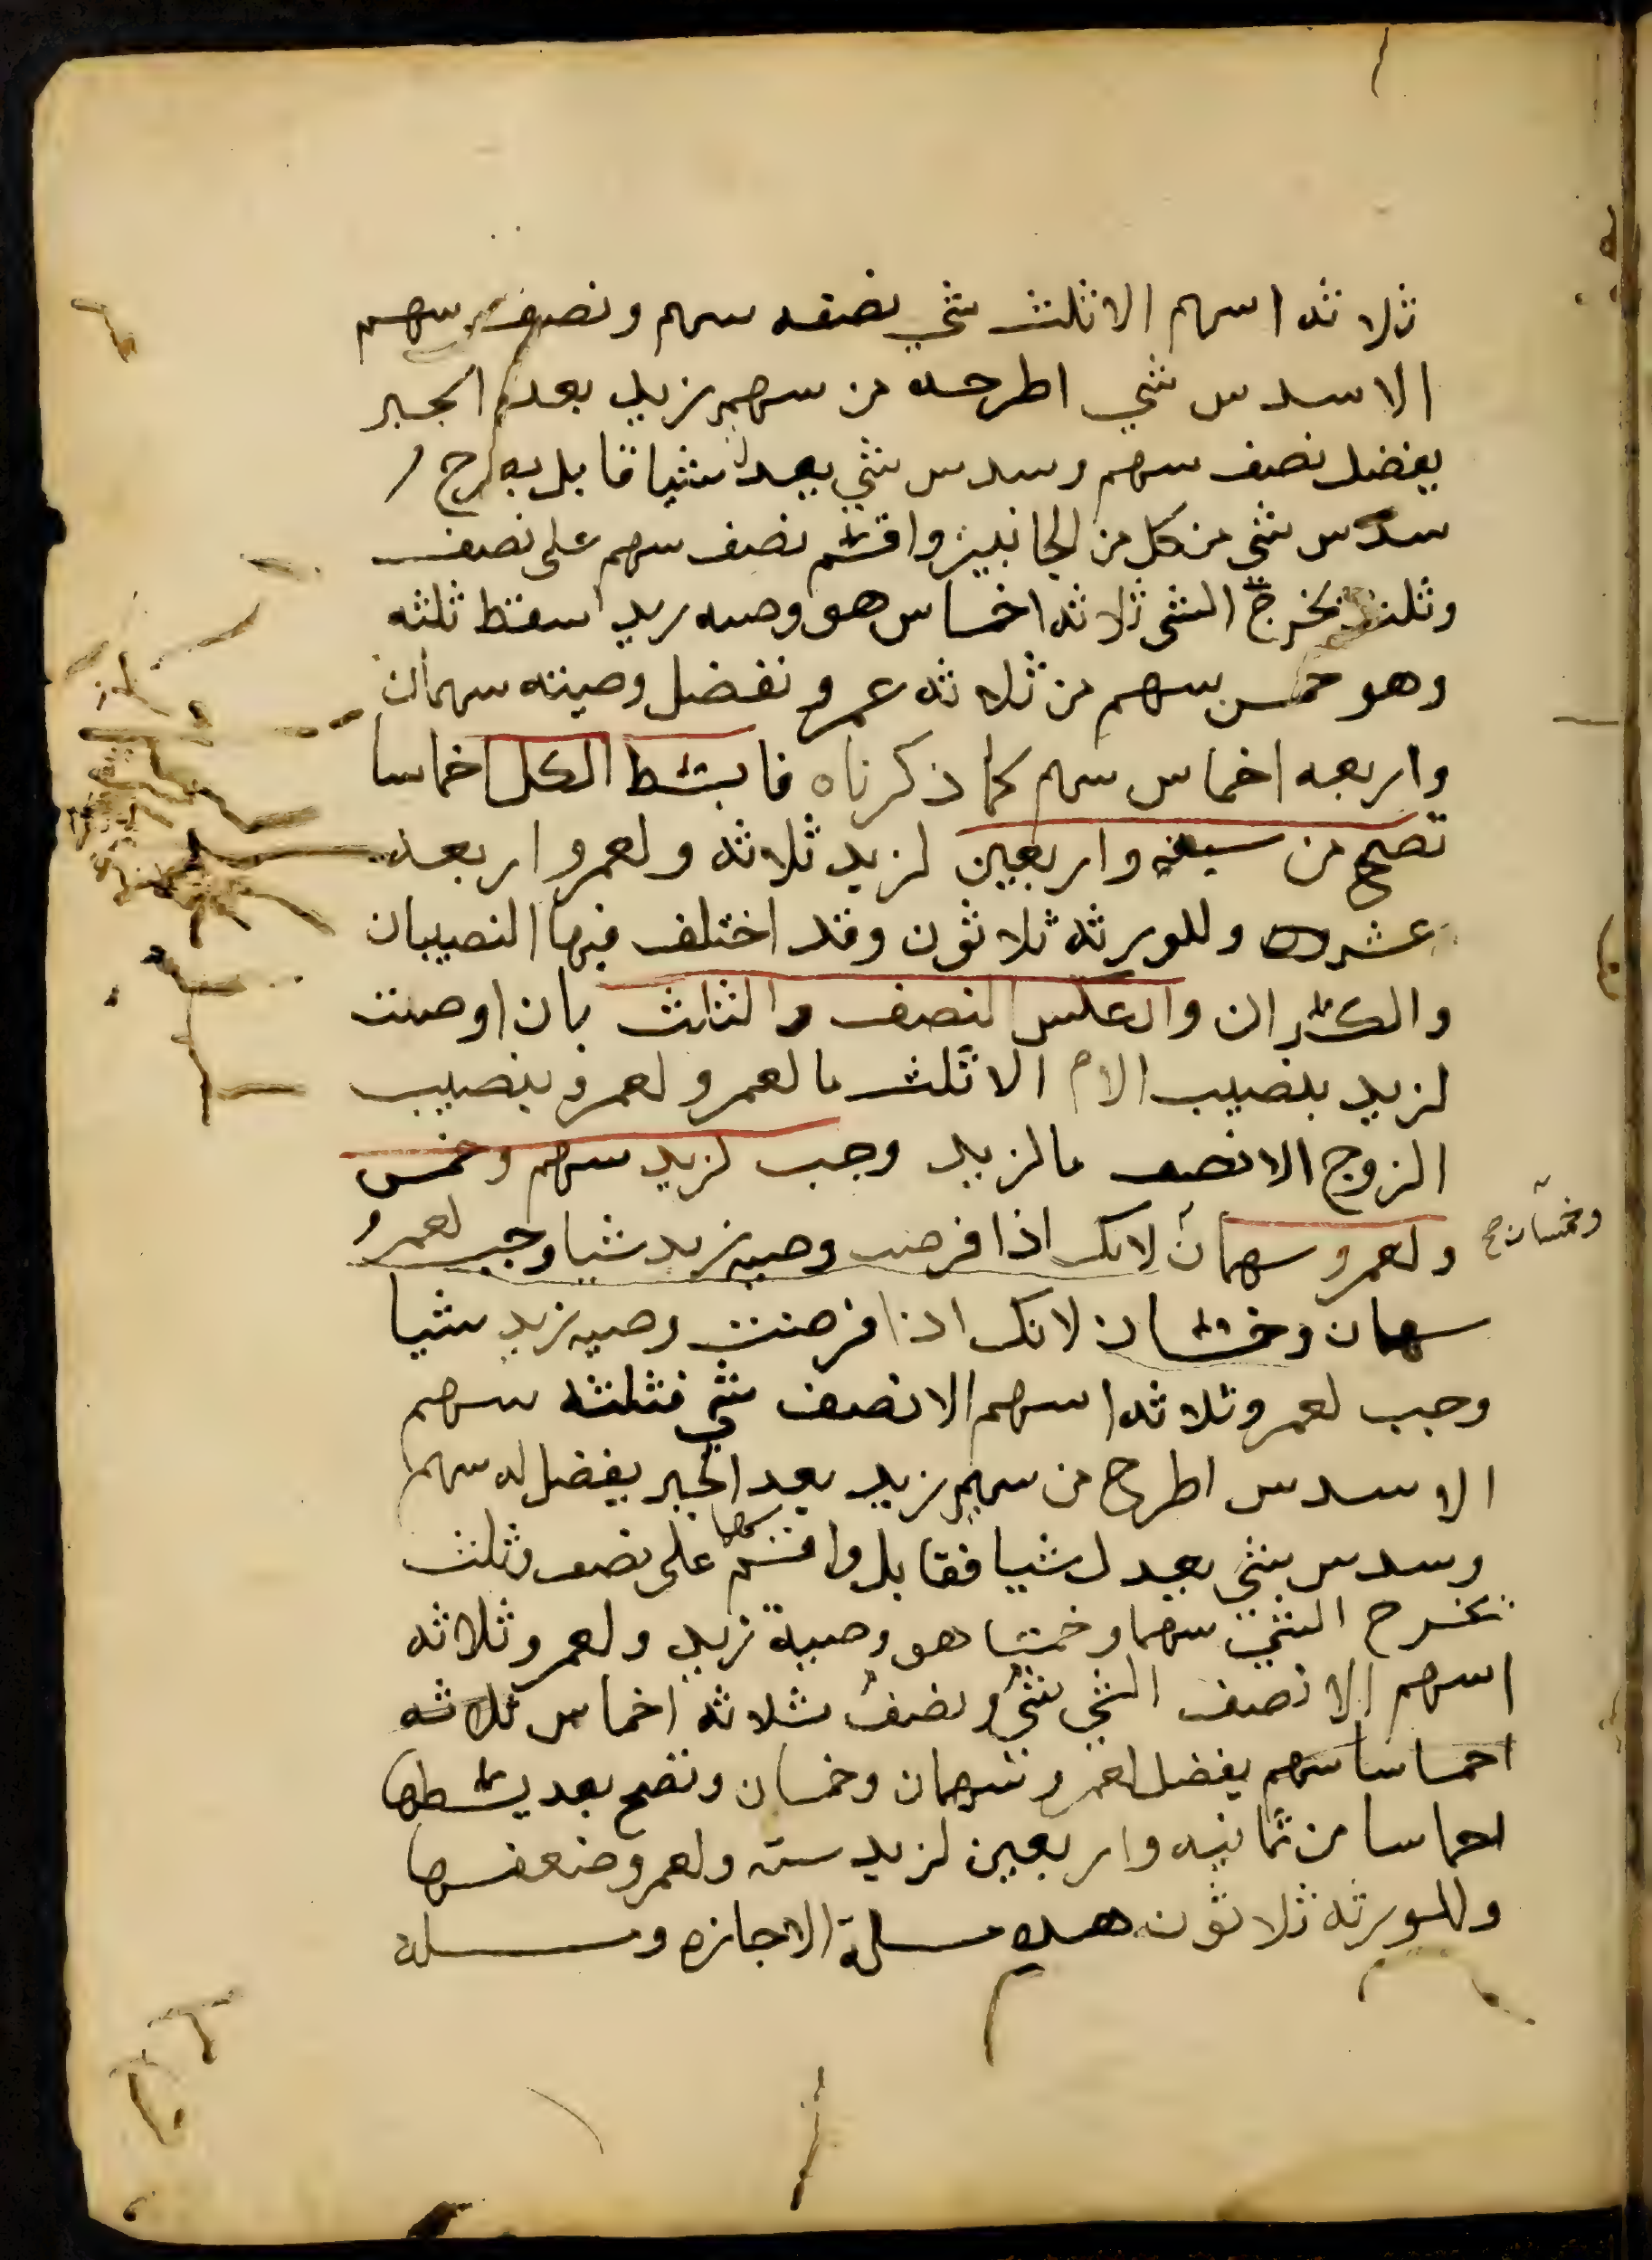 ثلاثه اسهم الا ثلث شي نصفه سهم ونصف سهم
الا سدس شي اطرحه من سهم زيد بعد الجبر
يفضل نصف سهم وسدس شي يعدل شيا قابل به
سدس شي من كل من الجانبين واقسم نصف سهم على نصف
وثلث يخرج الشي ثلاثه اخماس هو وصيه زيد اسقط ثلثه
وهو خمس سهم من ثلاثه عمرو تفضل وصيته سهمان
واربعه اخماس سهم كما ذكرناه فابسط الكل اخماسا
تصح من سبعه واربعين لزيد ثلاثه ولعمرو اربعه
عشره وللورثه ثلاثون وقد اختلف فيها النصيبان
والكسران والعكس النصف والثلث بان اوصيت
لزيد بنصيب الام الا ثلث ما لعمرو ولعمرو بنصيب
الزوج الا نصف ما لزيد وجب لزيد سهم وخمس
ولعمرو سهمان لانك اذا فرضت وصيه زيد شيا وجب لعمرو
وخمسان صح
سهمان وخمسان لانك اذا فرضت وصيه زيد شيا
وجب لعمرو ثلاثه اسهم الا نصف شي فثلثه سهم
الا سدس اطرح من سهم زيد بعد الجبر يفضل له سهم
وسدس شي يعدل شيا فقابل واقسم سهما على نصف وثلث
يخرج الشي سهما وخمسا هو وصية زيد ولعمرو ثلاثه
اسهم الا نصف الشي شي ونصف بثلاثه اخماس ثلاثه
اخماسا سهم يفضل لعمرو سهمان وخمسان وتصح بعد بسطها
اخماسا من ثمانيه واربعين لزيد سته ولعمرو ضعفها
وللورثه ثلاثون هذه مسلة الاجازه ومسلة